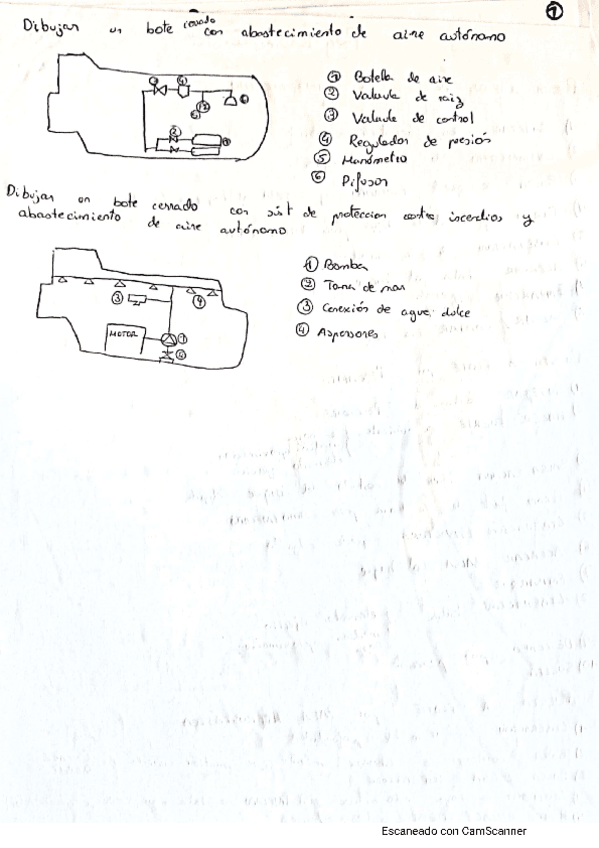 ①
Dibujar un bote cerrado con abastecimiento de aire autónomo
① Botella de aire
② Valvula de raiz
③ Valvula de control
④ Regulador de presión
⑤ Manómetro
⑥ Difusor
Dibujar un bote cerrado con sist de proteccion contra incendios y
abastecimiento de aire autónomo
① Bomba
② Toma de mar
③ Conexión de agua dulce
④ Aspersores
③ ④
MOTOR ①
②
Escaneado con CamScanner